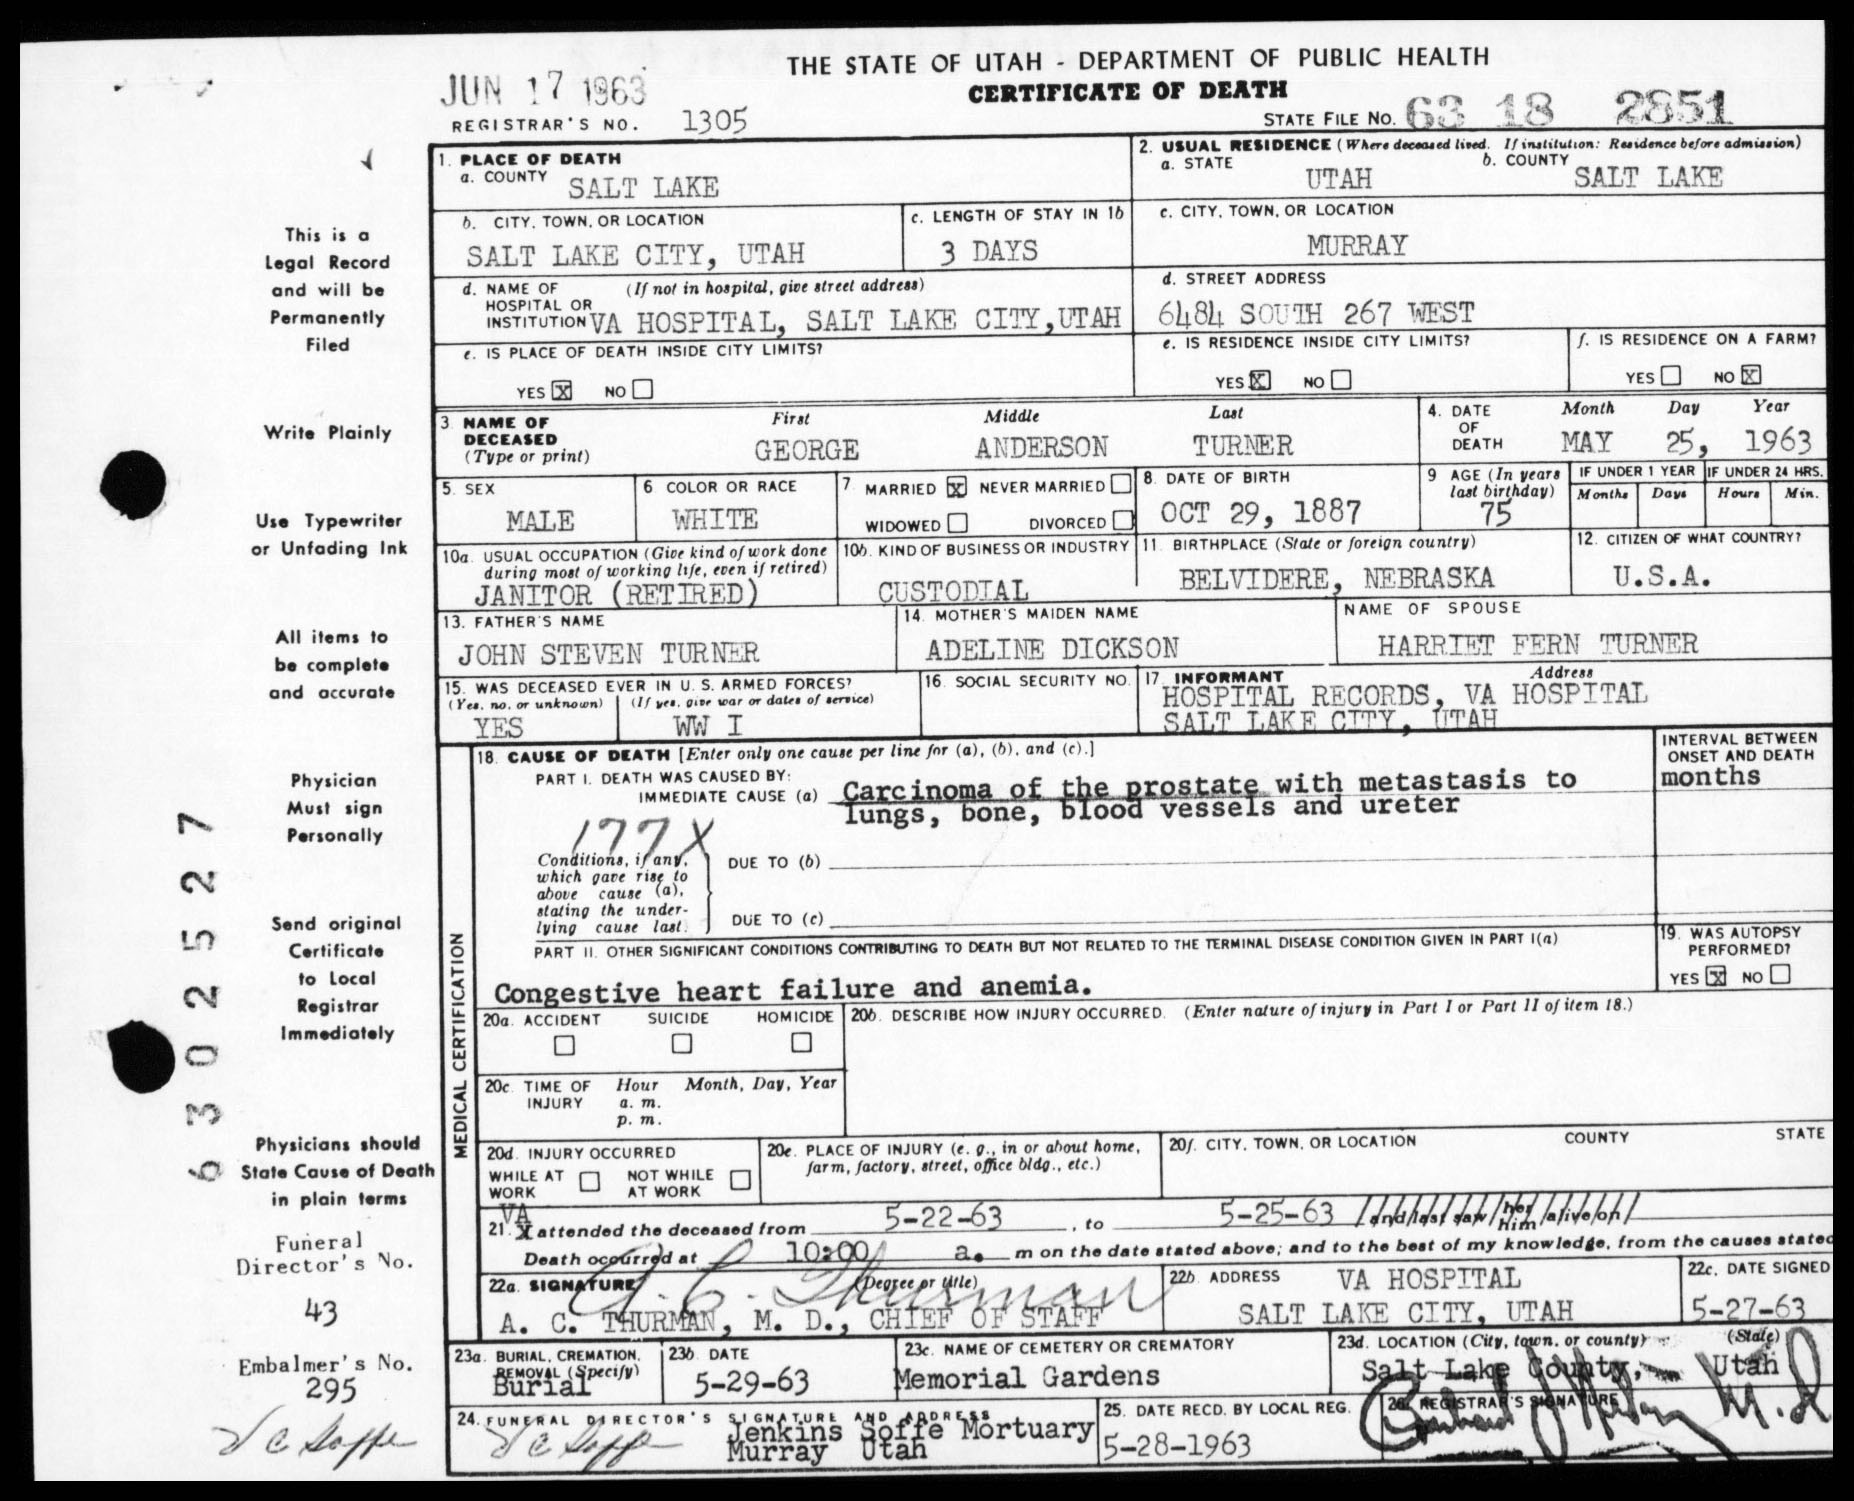 THE STATE OF UTAH - DEPARTMENT OF PUBLIC HEALTH
JUN 17 1963
CERTIFICATE OF DEATH
REGISTRAR'S NO. 1305
STATE FILE NO. 63 18 2851
1. PLACE OF DEATH
a. COUNTY SALT LAKE
2. USUAL RESIDENCE (Where deceased lived. If institution: Residence before admission)
a. STATE UTAH b. COUNTY SALT LAKE
b. CITY, TOWN, OR LOCATION
SALT LAKE CITY, UTAH
c. LENGTH OF STAY IN 1b
3 DAYS
c. CITY, TOWN, OR LOCATION
MURRAY
d. NAME OF HOSPITAL OR INSTITUTION (If not in hospital, give street address)
VA HOSPITAL, SALT LAKE CITY,UTAH
d. STREET ADDRESS
6484 SOUTH 267 WEST
e. IS PLACE OF DEATH INSIDE CITY LIMITS?
YES X NO
e. IS RESIDENCE INSIDE CITY LIMITS?
YES X NO
f. IS RESIDENCE ON A FARM?
YES NO X
3. NAME OF DECEASED (Type or print)
First Middle Last
GEORGE ANDERSON TURNER
4. DATE OF DEATH
Month Day Year
MAY 25, 1963
5. SEX
MALE
6 COLOR OR RACE
WHITE
7. MARRIED X NEVER MARRIED
WIDOWED DIVORCED
8. DATE OF BIRTH
OCT 29, 1887
9 AGE (In years last birthday)
75
IF UNDER 1 YEAR
Months Days
IF UNDER 24 HRS.
Hours Min.
10a. USUAL OCCUPATION (Give kind of work done during most of working life, even if retired)
JANITOR (RETIRED)
10b. KIND OF BUSINESS OR INDUSTRY
CUSTODIAL
11. BIRTHPLACE (State or foreign country)
BELVIDERE, NEBRASKA
12. CITIZEN OF WHAT COUNTRY?
U.S.A.
13. FATHER'S NAME
JOHN STEVEN TURNER
14. MOTHER'S MAIDEN NAME
ADELINE DICKSON
NAME OF SPOUSE
HARRIET FERN TURNER
15. WAS DECEASED EVER IN U. S. ARMED FORCES?
(Yes, no, or unknown) (If yes, give war or dates of service)
YES WW I
16. SOCIAL SECURITY NO.
17. INFORMANT Address
HOSPITAL RECORDS, VA HOSPITAL
SALT LAKE CITY, UTAH
MEDICAL CERTIFICATION
18. CAUSE OF DEATH [Enter only one cause per line for (a), (b), and (c).]
PART I. DEATH WAS CAUSED BY:
IMMEDIATE CAUSE (a) Carcinoma of the prostate with metastasis to
lungs, bone, blood vessels and ureter
INTERVAL BETWEEN
ONSET AND DEATH
months
177X
Conditions, if any,
which gave rise to
above cause (a),
stating the under-
lying cause last.
DUE TO (b)
DUE TO (c)
PART II. OTHER SIGNIFICANT CONDITIONS CONTRIBUTING TO DEATH BUT NOT RELATED TO THE TERMINAL DISEASE CONDITION GIVEN IN PART I(a)
Congestive heart failure and anemia.
19. WAS AUTOPSY
PERFORMED?
YES X NO
20a. ACCIDENT SUICIDE HOMICIDE
20b. DESCRIBE HOW INJURY OCCURRED. (Enter nature of injury in Part I or Part II of item 18.)
20c. TIME OF INJURY Hour Month, Day, Year
a. m.
p. m.
20d. INJURY OCCURRED
WHILE AT WORK NOT WHILE AT WORK
20e. PLACE OF INJURY (e. g., in or about home,
farm, factory, street, office bldg., etc.)
20f. CITY, TOWN, OR LOCATION COUNTY STATE
VA
21. X attended the deceased from 5-22-63, to 5-25-63 and last saw her him alive on
Death occurred at 10:00 a. m on the date stated above; and to the best of my knowledge, from the causes stated
22a. SIGNATURE (Degree or title)
A. C. Thurman
A. C. THURMAN, M. D., CHIEF OF STAFF
22b. ADDRESS VA HOSPITAL
SALT LAKE CITY, UTAH
22c. DATE SIGNED
5-27-63
23a. BURIAL, CREMATION,
REMOVAL (Specify)
Burial
23b. DATE
5-29-63
23c. NAME OF CEMETERY OR CREMATORY
Memorial Gardens
23d. LOCATION (City, town, or county) (State)
Salt Lake County, Utah
24. FUNERAL DIRECTOR'S SIGNATURE AND ADDRESS
Jenkins Soffe Mortuary
Murray Utah
25. DATE RECD. BY LOCAL REG.
5-28-1963
26. REGISTRAR'S SIGNATURE
This is a
Legal Record
and will be
Permanently
Filed
Write Plainly
Use Typewriter
or Unfading Ink
All items to
be complete
and accurate
Physician
Must sign
Personally
Send original
Certificate
to Local
Registrar
Immediately
Physicians should
State Cause of Death
in plain terms
Funeral
Director's No.
43
Embalmer's No.
295
6302527